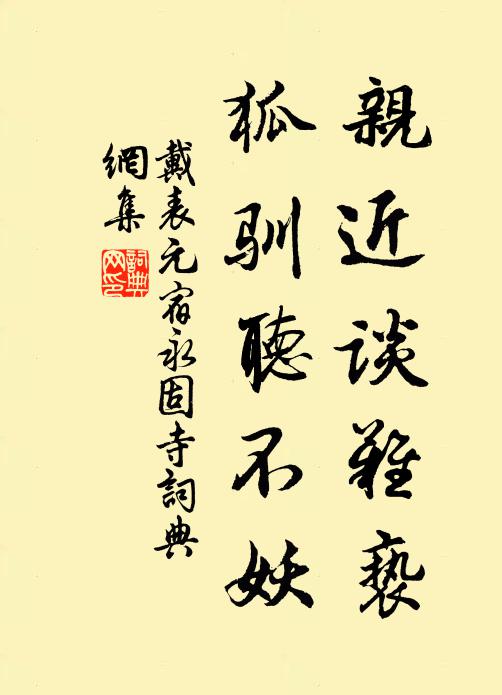 親近談難褻
狐馴聽不妖
戴表元宿永固寺詞典
網集
詞典網印